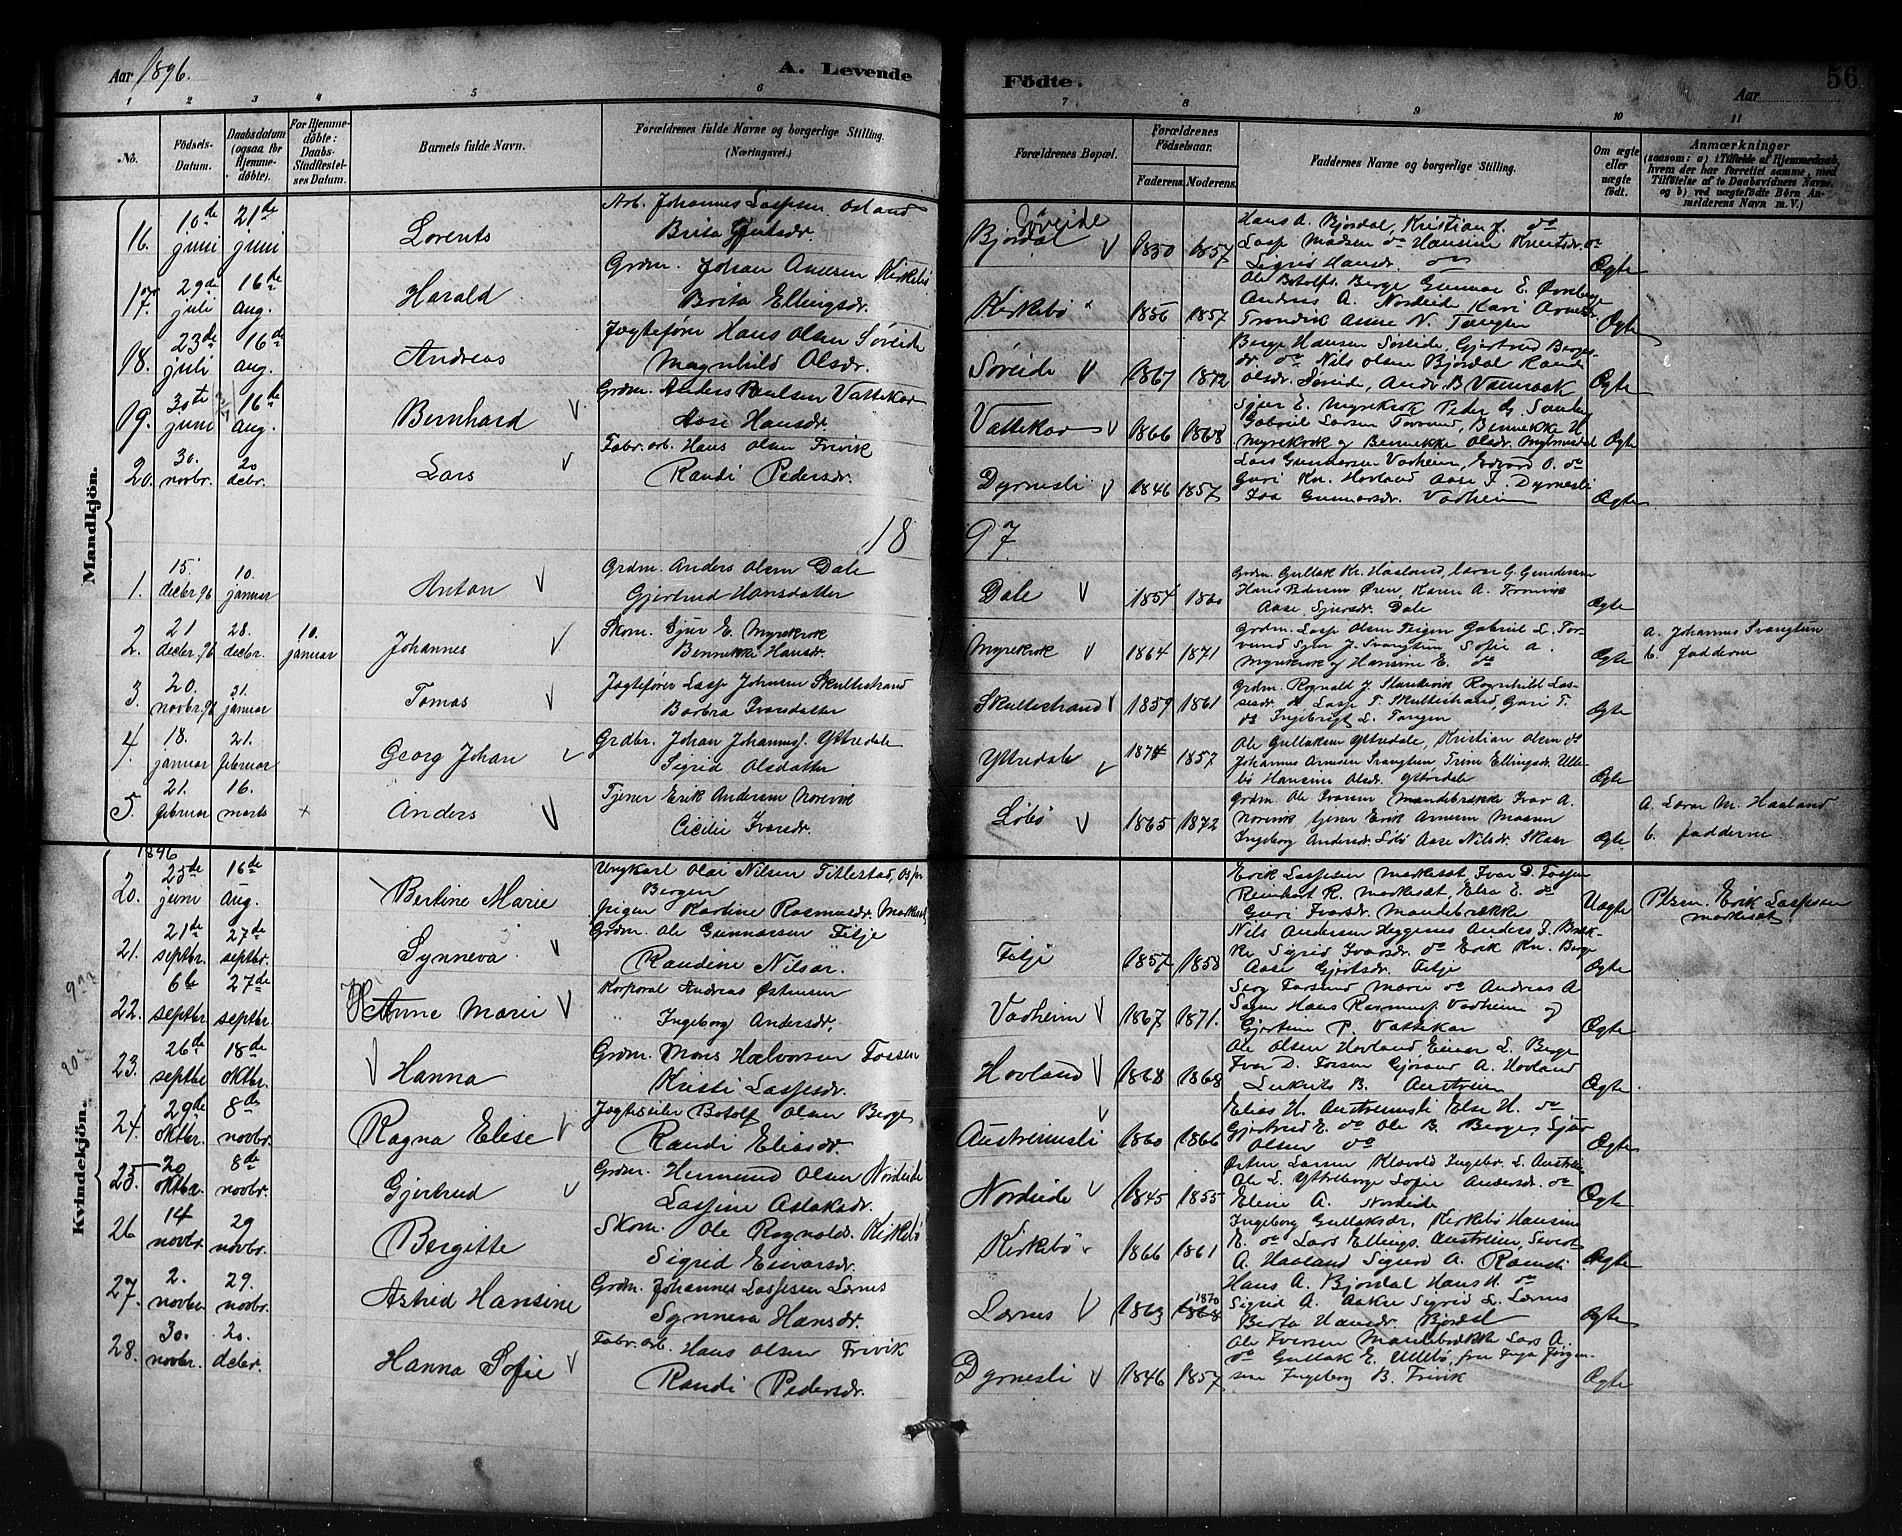 Aar 1896.
A. Levende
Födte.
Aar
56
1 2 3 4 5 6 7 8 9 10 11
No.
Födsels-Datum.
Daabsdatum (ogsaa for Hjemme-döbte).
For Hjemme-döbte: Daabs-Stadfæstel-ses Datum.
Barnets fulde Navn.
Forældrenes fulde Navne og borgerlige Stilling. (Næringsvei.)
Forældrenes Bopæl.
Forældrenes Födselsaar.
Faderens. Moderens.
Faddernes Navne og borgerlige Stilling.
Om ægte eller uægte födt.
Anmærkninger
(saasom: a) i Tilfælde af Hjemmedaab, hvem der har forrettet samme, med Tilföielse af to Daabsvidners Navne, og b) ved uægtefödte Börn An-melderens Navn m. V.)
Mandkjön.
16. 10de juni 21de juni Lorents Arb. Johannes Lassesen
Brita Bjordal Söreide 1850 1857 Hans A. Bjordal, Kristian J. do
Lasse Madsen do Hansine Knutsdr. do
Sigrid Hansdr. do Ægte
17. 29de juli 16de aug. Harald Grdm. Johan Andersen Kirkebö
Brita Ellingsdr. Kirkebö 1856 1857 Ole Botolfs. Berge Gunnar E.
Andreas A. Nordeide Kari
Anne N. Tangen Ægte
18. 23de juli 16de aug. Andreas Jægtefører Hans Olsen Söreide
Magnhild Olsdr. Söreide 1867 1872 Berge Hansen Söreide, Gjertrud Berges-
dr. do Nils Olsen Bjordal Randi
Olsdr. Söreide, Andr. B. Ægte
19. 30te juni 16de aug. Bernhard Grdm. Anders Paulsen Vattekar
Aase Hansdr. Vattekar 1866 1868 Sjur E. Myrekrok Peder
Gabriel Larsen Torsund, Bennekke H.
Myrekrok og Bennekke Olsdr. Ægte
20. 30. novbr. 20 debr. Lars Fabr. arb. Hans Olsen Frivik
Randi Pedersdr. Dyrnesli 1846 1857 Lars Gunnarsen Vadheim, Edvard O. do
Guri Kn. Hovland Aase J. Dyrnesli
Gunnarsdr. Vadheim Ægte
18 97
1. 15 decbr. 96 10. januar Anton Grdm. Anders Olsen Dale
Gjertrud Hansdatter Dale 1854 1860 Grdm. Gullak Kr. Haaland, Lasse G. Gundersen
Hans Pedersen Øren, Karen A.
Aase Sjursdr. Dale Ægte
2. 21 decbr. 96 28. decbr. 10. januar Johannes Skom. Sjur E. Myrekrok
Bennekke Hansdr. Myrekrok 1864 1871 Grdm. Lasse Olsen Teigen Gabriel L. Tor-
sund Sjur J. Svangtun Sofie A.
Myrekrok og Hansine E. do Ægte a. Johannes Svangtun
b. fadderne
3. 20. novbr. 96 31. januar Tomas Jægtefører Lasse Johnsen Skultestrand
Barbra Ivarsdatter Skultestrand 1859 1861 Grdm. Rognald J. Ragnhild Las-
sesdr. do Lasse T. Skultestrand, Guri T.
do Ingebrigt L. Tangen Ægte
4. 18. januar 21. februar Georg Johan Grdbr. Johan Johanness. Yttredale
Sigrid Olsdatter Yttredale 1874 1857 Ole Gullaksen Yttredale, Kristian Olsen do
Johannes Arnesen Svangtun Trine Ellingsdr. Ulle-
bö Hansine Olsdr. Yttredale Ægte
5. 21. februar 16. marts × Anders Tjener Erik Andersen Norevik
Cicilie Ivarsdr. Löbö 1865 1872 Grdm. Ole Ivarsen Mandebrække Ivar A.
Norevik tjener Erik Arnesen Maaren
Ingeborg Andersdr. Löbö Aase Nilsdr. Skaar Ægte A. Lasse M. Haaland
b. fadderne
Kvindekjön.
1896
20. 25de juni 16de aug. Bertine Marie Ungkarl Olai Nilsen Titlestad,
Bergen
pigen Kartine Rasmusdr. Markeset Erik Lassesen Markeset, Ivar D. Fossen
Reinhart R. Markeset, Elsa E. do
Guri Ivarsdr. Mandebrække Uægte Plsm. Erik Lassesen
Markeset
21. 21de septbr. 27de septbr. Synneva Grdm. Ole Gunnarsen Fetje
Raudine Nilsdr. Fetje 1857 1858 Nils Andersen Heggenes Anders J. Bræk-
ke Sigrid Ivarsdr. do Erik Kn. Berge
Aase Gjertsdr. Fetje Ægte
22. 6te septbr. 27de septbr. Anne Marie Korporal Andreas Østensen
Ingeborg Andersdr. Vadheim 1867 1871. Serg. Torsund Marie do Andreas A.
Hans Rasmuss. Vadheim og
Gjertine P. Vattekar Ægte
23. 26de septbr. 18de oktbr. Hanna Grdm. Mons Halvorsen Fossen
Kristi Lassesdr. Hovland 1868 1868 Ole Olsen Hovland, Einar L. Berge
Ivar D. Fossen Gjörine A. Hovland
B. Austreim Ægte
24. 29de oktbr. 8de novbr. Ragna Elise Jægteseiler Botolf Olsen Berge
Randi Eliasdr. Austreimsli 1860 1866 Elias H. Austreimsli Else H. do
Gjertrud E. do Ole B. Berge, Sjur
Olsen do Ægte
25. 20 oktbr. 8de novbr. Gjertrud Grdm. Hermund Olsen Nordeide
Lassine Aslaksdr. Nordeide 1845 1855 Østen Larsen Klævold Ingebr. L. Austreim
Ole L. Ytreberge Sofie Andersdr. do
Eline A. Nordeide Ægte
26. 14 novbr. 29 novbr. Bergitte Skom. Ole Rognalds. Kirkebö
Sigrid Einarsdr. Kirkebö 1866 1861 Ingeborg Gullaksdr. Kirkebö Hansine
E. do Lars Ellings. Austreim, Sivert
A. Haaland Sigurd A. Ægte
27. 2. novbr. 29. novbr. Astrid Hansine Grdm. Johannes Lassesen Lærnes
Synneva Hansdr. Lærnes 1863 1868 1870 Hans A. Bjordal Hans H. do
Sigrid A. Aakre Sigrid L. Lærnes
Berta Hansdr. Bjordal Ægte
28. 30. novbr. 20. debr. Hanna Sofie Fabr. arb. Hans Olsen Frivik
Randi Pedersdr. Dyrnesli 1846 1857 Ole Iversen Mandebrække Lars A.
do Gullak E. Ullebö, fru Inga Jörgen-
sen Ingeborg B. Frivik Ægte